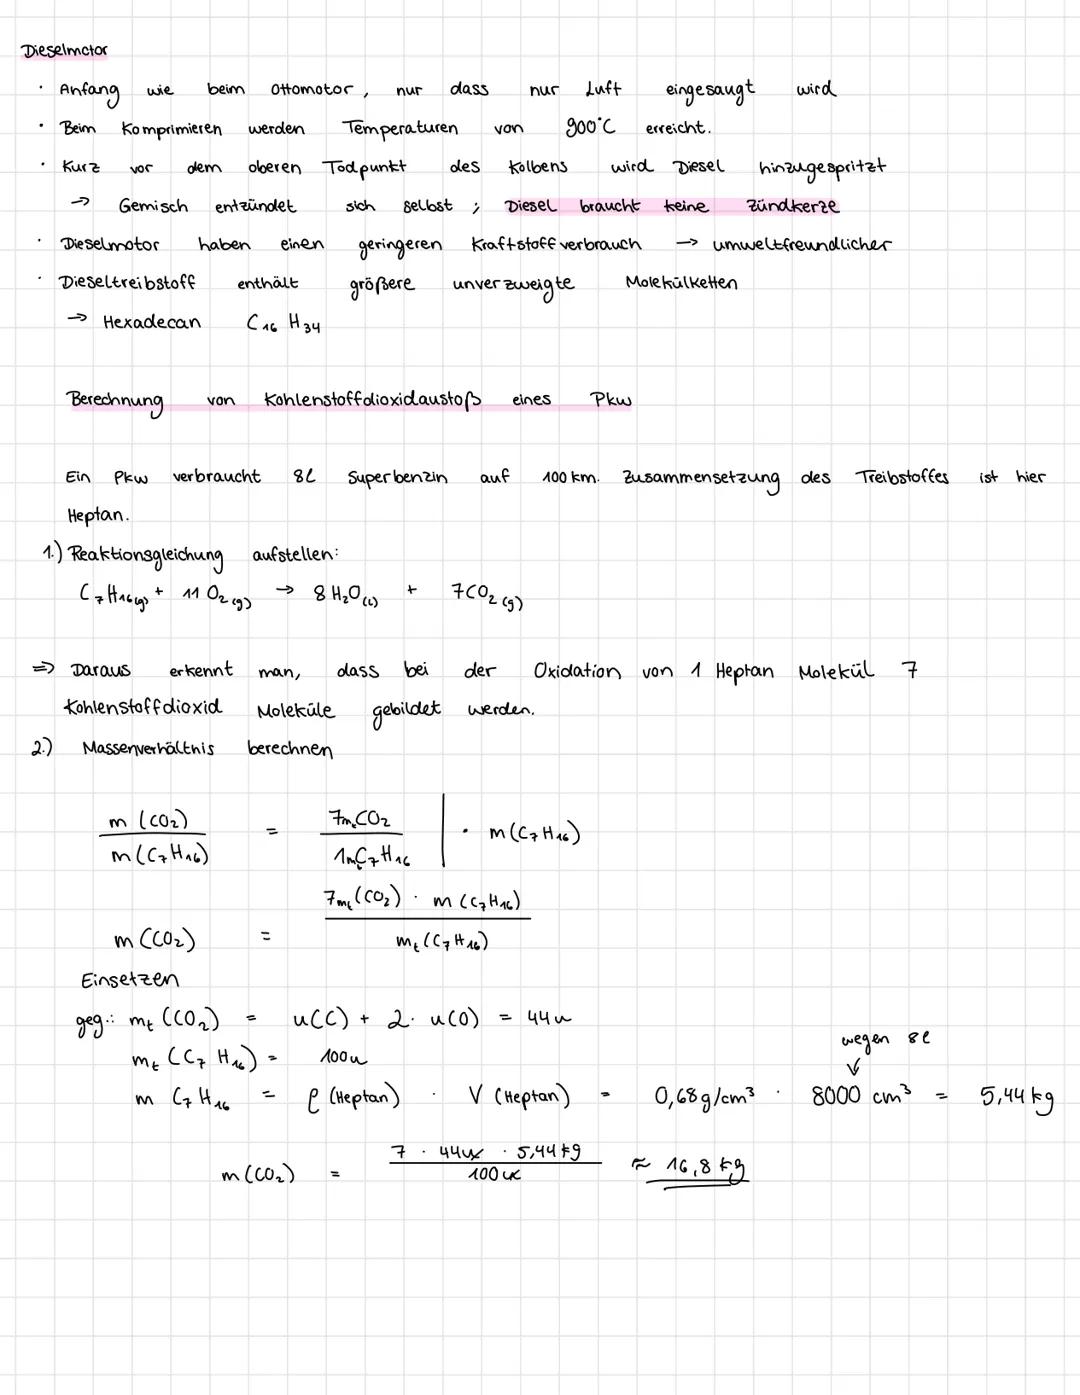 Dieselmotor
· Anfang wie beim Ottomotor, nur dass nur Luft eingesaugt wird
· Beim Komprimieren werden Temperaturen von 900°C erreicht.
· Kurz vor dem oberen Todpunkt des Kolbens wird Diesel hinzugespritzt
→ Gemisch entzündet sich selbst ; Diesel braucht keine Zündkerze
· Dieselmotor haben einen geringeren Kraftstoffverbrauch → umweltfreundlicher
· Dieseltreibstoff enthält größere unverzweigte Molekülketten
→ Hexadecan C₁₆ H₃₄
Berechnung von Kohlenstoffdioxidaustoß eines Pkw
Ein Pkw verbraucht 8l Superbenzin auf 100 km. Zusammensetzung des Treibstoffes ist hier
Heptan.
1.) Reaktionsgleichung aufstellen:
C₇H₁₆(g) + 11 O₂(g) → 8 H₂O(l) + 7CO₂(g)
⇒ Daraus erkennt man, dass bei der Oxidation von 1 Heptan Molekül 7
Kohlenstoffdioxid Moleküle gebildet werden.
2.) Massenverhältnis berechnen
m (CO₂) / m (C₇H₁₆) = 7mₜCO₂ / 1mₜC₇H₁₆ | · m (C₇H₁₆)
m (CO₂) = 7mₜ(CO₂) · m (C₇H₁₆) / mₜ (C₇H₁₆)
Einsetzen
geg.: mₜ (CO₂) = u(C) + 2· u(O) = 44u
mₜ (C₇ H₁₆) = 100u
wegen 8l
↓
m C₇H₁₆ = ρ (Heptan) · V (Heptan) = 0,68g/cm³ · 8000 cm³ = 5,44 kg
m (CO₂) = 7 · 44u · 5,44kg / 100u ≈ 16,8 kg